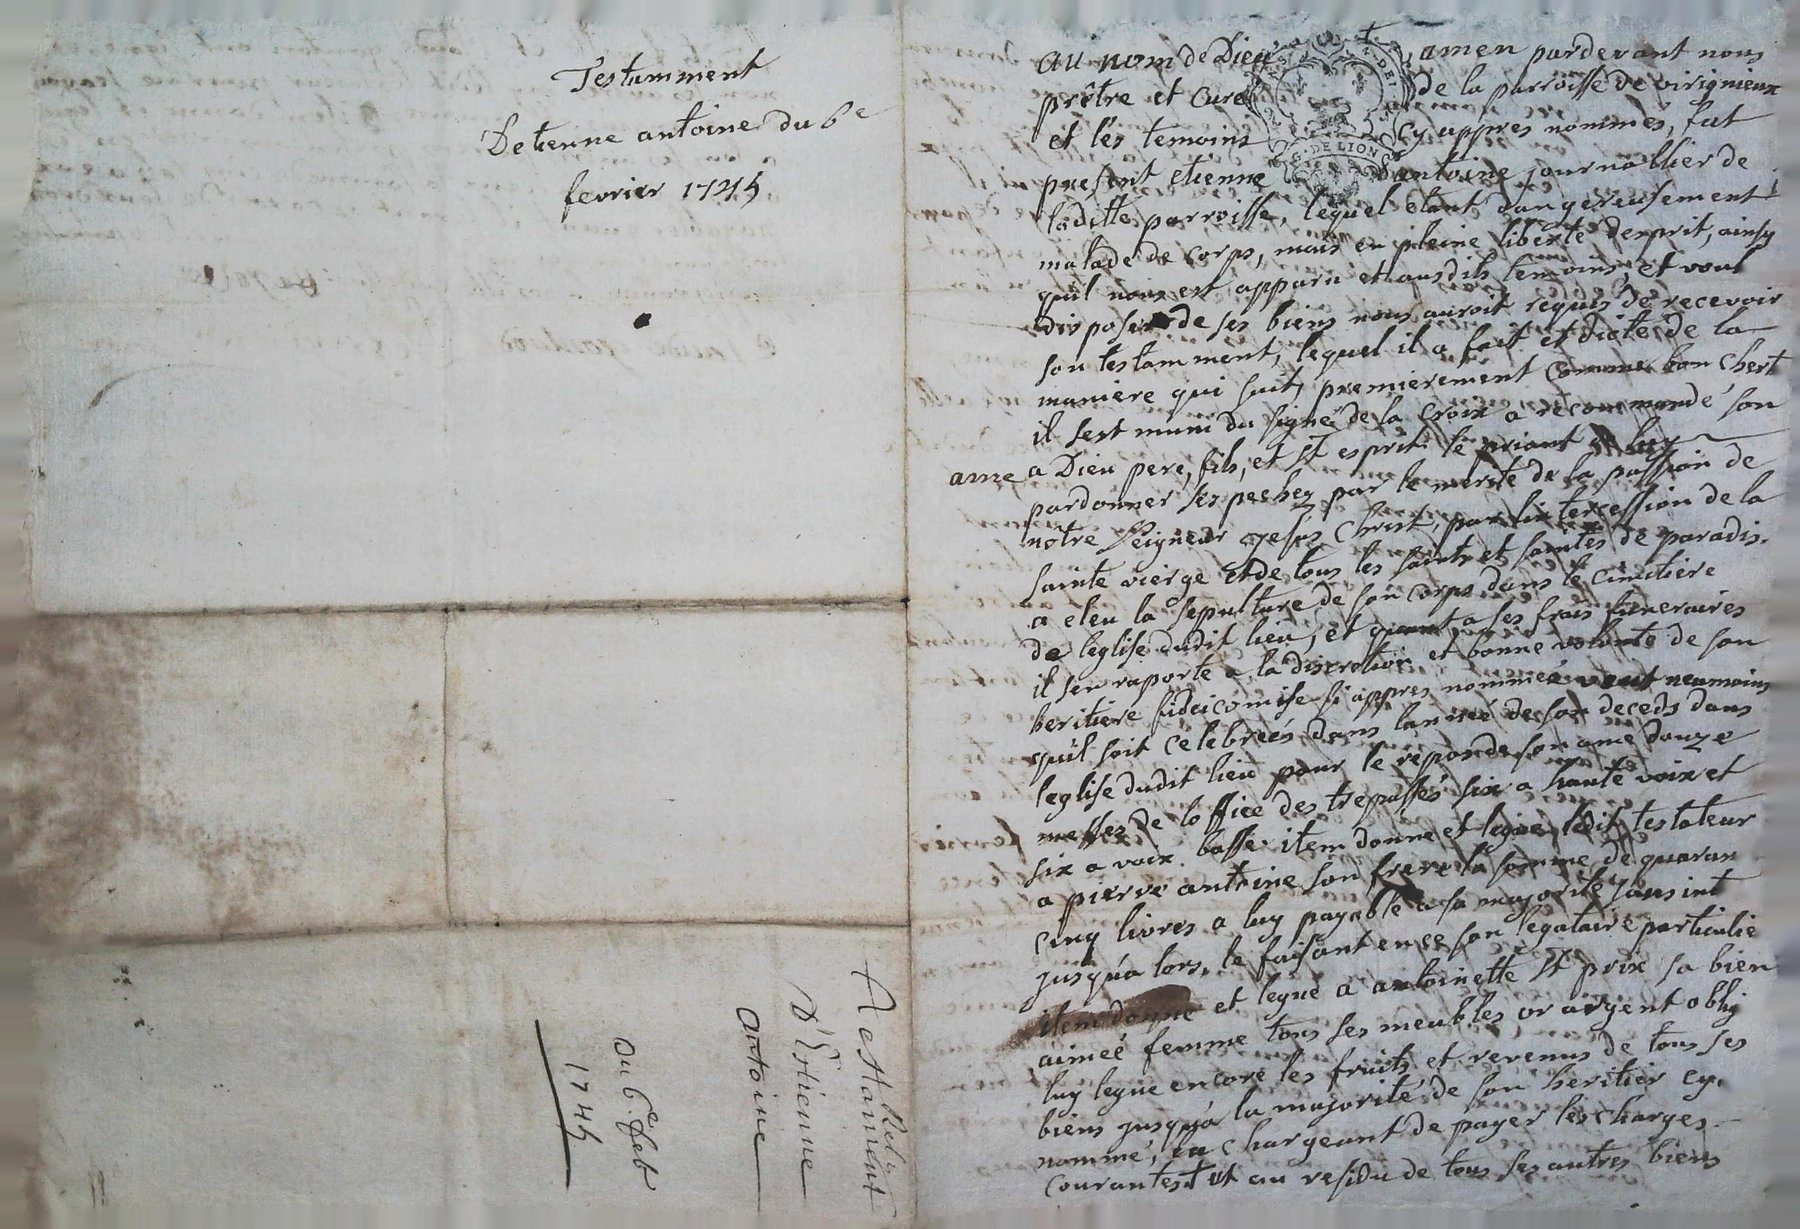 Testamment
D'etienne antoine du 6e
fevrier 1745
Testament
D'Estienne
antoine
Du 6e feb
1745
au nom de Dieu amen pardevant nous
prêtre et curé de la parroisse de virignieux
et les temoins cy appres nommés, fut
present etienne antoine journallier de
laditte parroisse, lequel etant dangereusement
malade de corps, mais en pleine liberté desprit, ainsy
quil nous est apparu et ausdits temoins, et voul
disposer de ses biens nous auroit requis de recevoir
son testamment, lequel il a fait et dicté de la
maniere qui suit, premierement comme bon chert
il sest muni du signe de la croix a recommandé son
ame a Dieu pere, fils, et st esprit le priant de luy
pardonner ses pechez par le merite de la passion de
notre Seigneur Jesus Christ, par lintercession de la
sainte vierge et de tous les saints et saintes de paradis.
a eleu la sepulture de son corps dans le cimitiere
de leglise dudit lieu, et quant a ses frais funeraires
il sen raporte a la discretion et bonne volonté de son
heritiere fideicomise si appres nommée veut neamoins
quil soit celebrées dans lannee de son deceds dans
leglise dudit lieu pour le repos de son ame douze
messes de loffice des trepassés six a haute voix et
six a voix basse. item donne et legue ledit testateur
a pierre antoine son frere la somme de quaran
cinq livres a luy payable a sa majorité sans int
jusqu'a lors, le faisant en ce son legataire particulie
item donne et legue a antoinette st prix sa bien
aimeé femme tous ses meubles or argent oblig
luy legue encore les fruits et revenus de tous ses
biens jusqu'a la majorité de son heritier cy.
nommé, la chargeant de payer les charges
courantes et au residu de tous ses autres biens